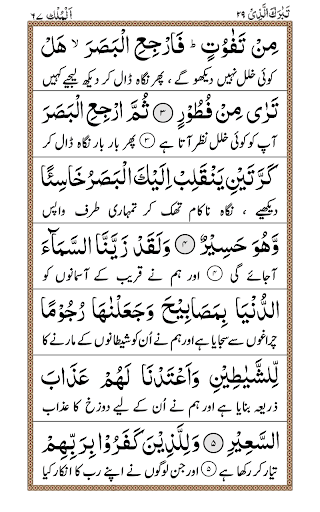 تَبٰرَكَ الَّذِیْ ۲۹ اَلْمُلْك ۶۷
مِنْ تَفٰوُتٍ ؕ فَارْجِعِ الْبَصَرَ ۙ هَلْ
کوئی خلل نہیں دیکھو گے ، پھر نگاہ ڈال کر دیکھ لیجیے کہیں
تَرٰی مِنْ فُطُوْرٍ ۝۳ ثُمَّ ارْجِعِ الْبَصَرَ
آپ کو کوئی خلل نظر آتا ہے ۝۳ پھر بار بار نگاہ ڈال کر
كَرَّتَیْنِ یَنْقَلِبْ اِلَیْكَ الْبَصَرُ خَاسِئًا
دیکھیے ، نگاہ ناکام تھک کر تمہاری طرف واپس
وَّهُوَ حَسِیْرٌ ۝۴ وَلَقَدْ زَیَّنَّا السَّمَآءَ
آجائے گی ۝۴ اور ہم نے قریب کے آسمانوں کو
الدُّنْیَا بِمَصَابِیْحَ وَجَعَلْنٰهَا رُجُوْمًا
چراغوں سے سجایا ہے اور ہم نے اُن کو شیطانوں کے مارنے کا
لِّلشَّیٰطِیْنِ وَاَعْتَدْنَا لَهُمْ عَذَابَ
ذریعہ بنایا ہے اور ہم نے اُن کے لیے دوزخ کا عذاب
السَّعِیْرِ ۝۵ وَلِلَّذِیْنَ كَفَرُوْا بِرَبِّهِمْ
تیار کر رکھا ہے ۝۵ اور جن لوگوں نے اپنے رب کا انکار کیا